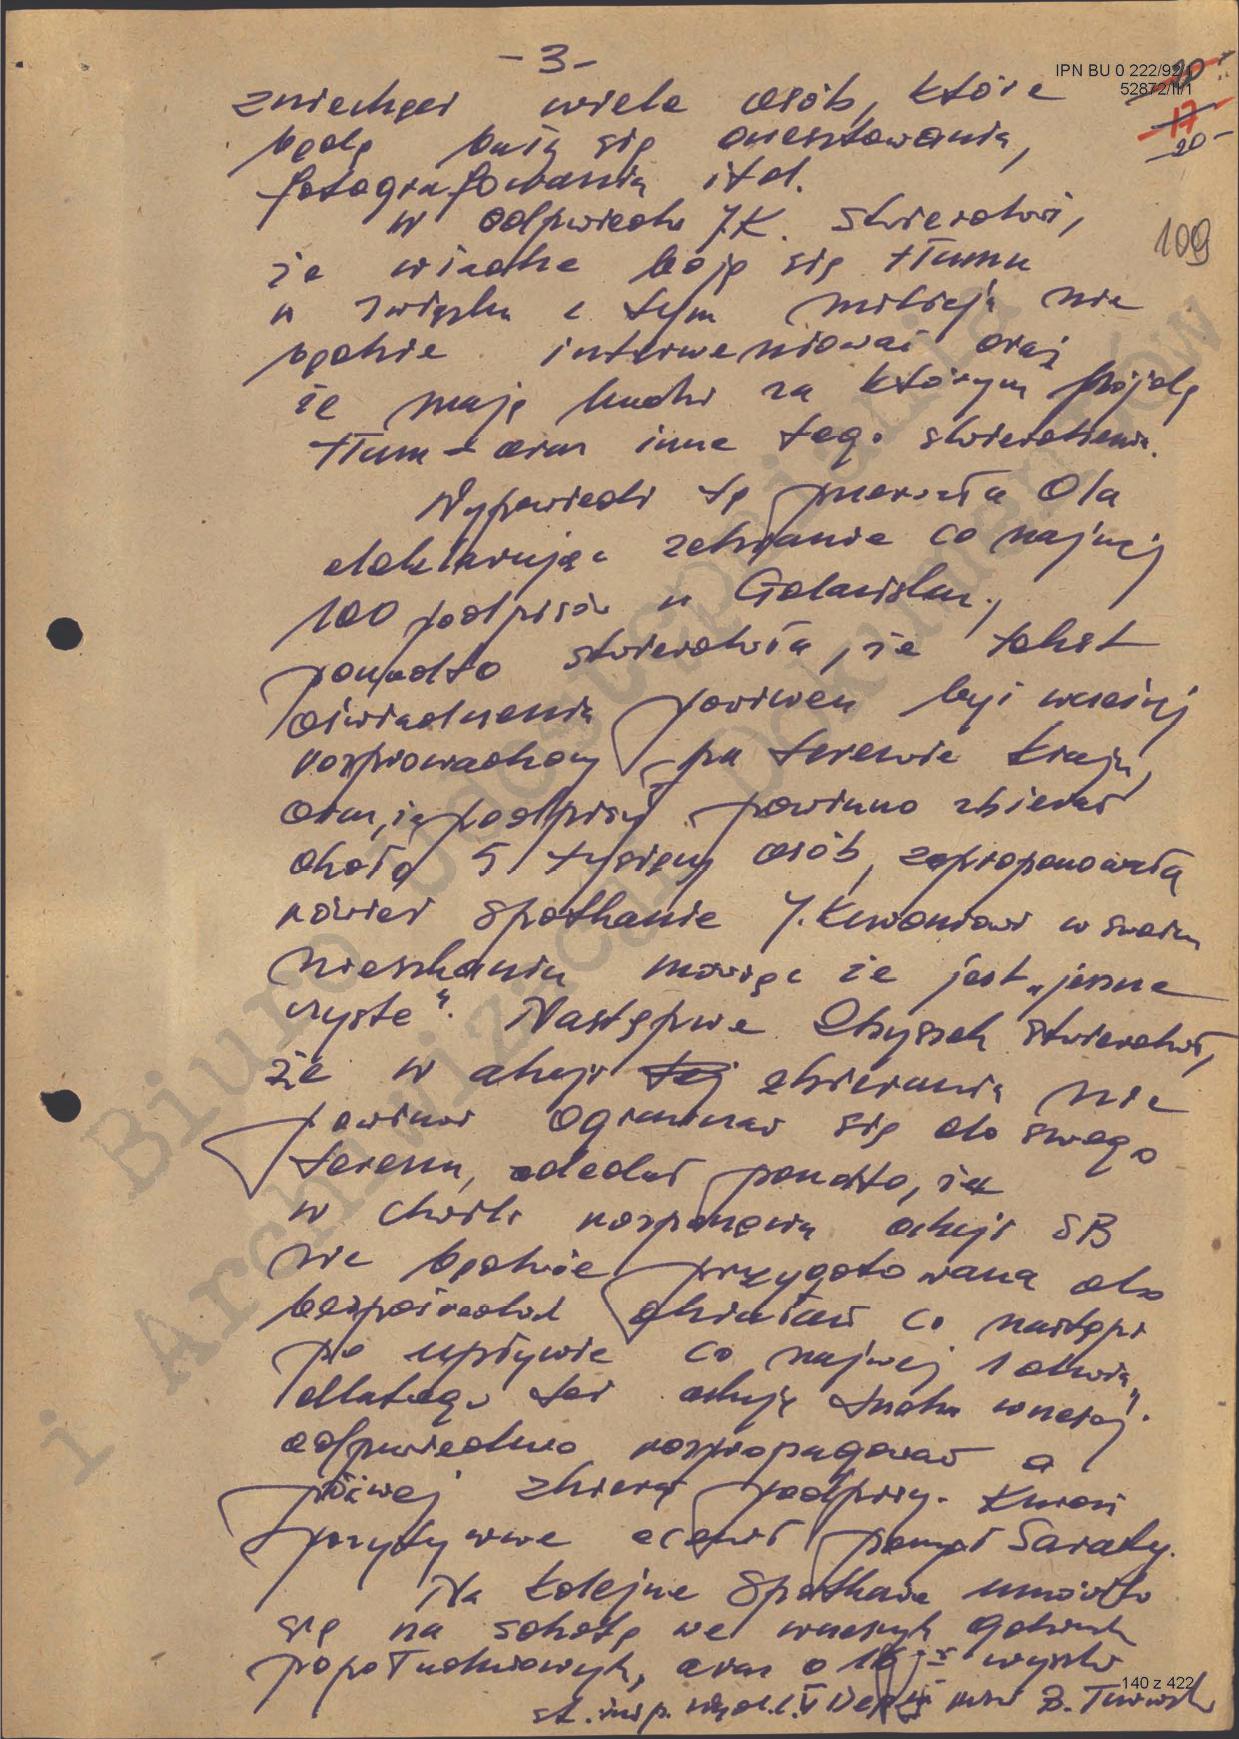 - 3 -
IPN BU 0 222/92/1
52872/II/1
17
20 -
109
zniechęci wiele osób, które
będą się aresztowania,
fotografowania itd.
W odpowiedzi J.K. stwierdził,
że władze boją się tłumu
w związku z tym milicja nie
będzie interweniować oraz
że mają ludzi za którymi pójdą
tłum - oraz inne tego stwierdzenia.
Wypowiedź tę Ola
deklarując zebranie co najmniej
100 podpisów w Gdańsku,
ponadto stwierdziła, że tekst
oświadczenia powinien być wcześniej
rozprowadzony po terenie kraju,
oraz, że podpisy powinno zbierać
około 5 tysięcy osób, zaproponowała
również spotkanie J. Kuroniowi w swoim
mieszkaniu mówiąc że jest „jeszcze
czyste". Następnie Zbyszek stwierdził,
że w akcji tej zbierania nie
powinni ograniczać się do swego
terenu, dodał ponadto, że
w chwili rozpoczęcia akcji SB
nie będzie przygotowana do
bezpośrednich działań co nastąpi
po upływie co najmniej 1 dnia,
dlatego też akcję trzeba wcześniej
odpowiednio rozpropagować a
później zbierać podpisy. Kuroń
pozytywnie ocenił pomysł Saraty.
Na kolejne spotkanie umówiło
się na sobotę we wczesnych godzinach
popołudniowych, oraz o wyszli
st. insp. Wydz. V Dep. III MSW
Biuro Udostępniania
i Archiwizacji Dokumentów
140 z 422